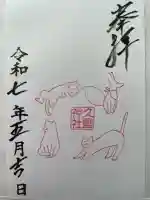 奉拝
令和七年五月吉日